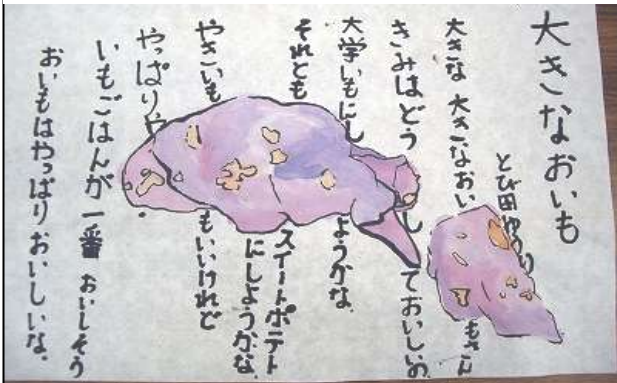 大きなおいも
とび田
大きな 大きなおい もさん
きみはどう し ておいしいの
大学いもにし ようかな
それとも スイートポテト
にしようかな。
やきいも もいいけれど
やっぱりや
いもごはんが一番 おいしそう
おいもはやっぱりおいしいな。